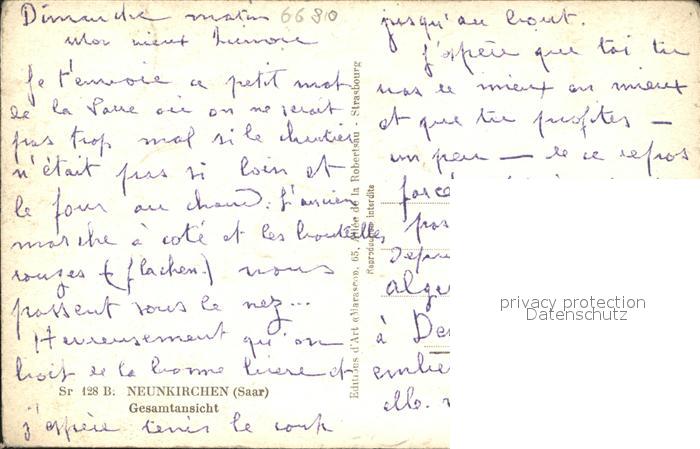 Dimanche matin 6630
Mon vieux
Je t'envoie ce petit mot
de la Sarre où on ne serait
pas trop mal si le chantier
n'était pas si loin et
le four au chaud. L'ancien
marche à coté et les bouteilles
rouges (flachen) nous
passent sous le nez...
Heureusement qu'on
boit de la bonne biere et
Sr 128 B. NEUNKIRCHEN (Saar)
Gesamtansicht
j'espère tenir le coup
Editions d'Art «Marasco», 65, Allée de la Robertsau - Strasbourg
Reproduction interdite
jusqu'au bout.
J'espère que toi tu
vas de mieux en mieux
et que tu profites -
un peu - de ce repos
forcé
pas
Depu
alge
à De
elle.
privacy protection
Datenschutz